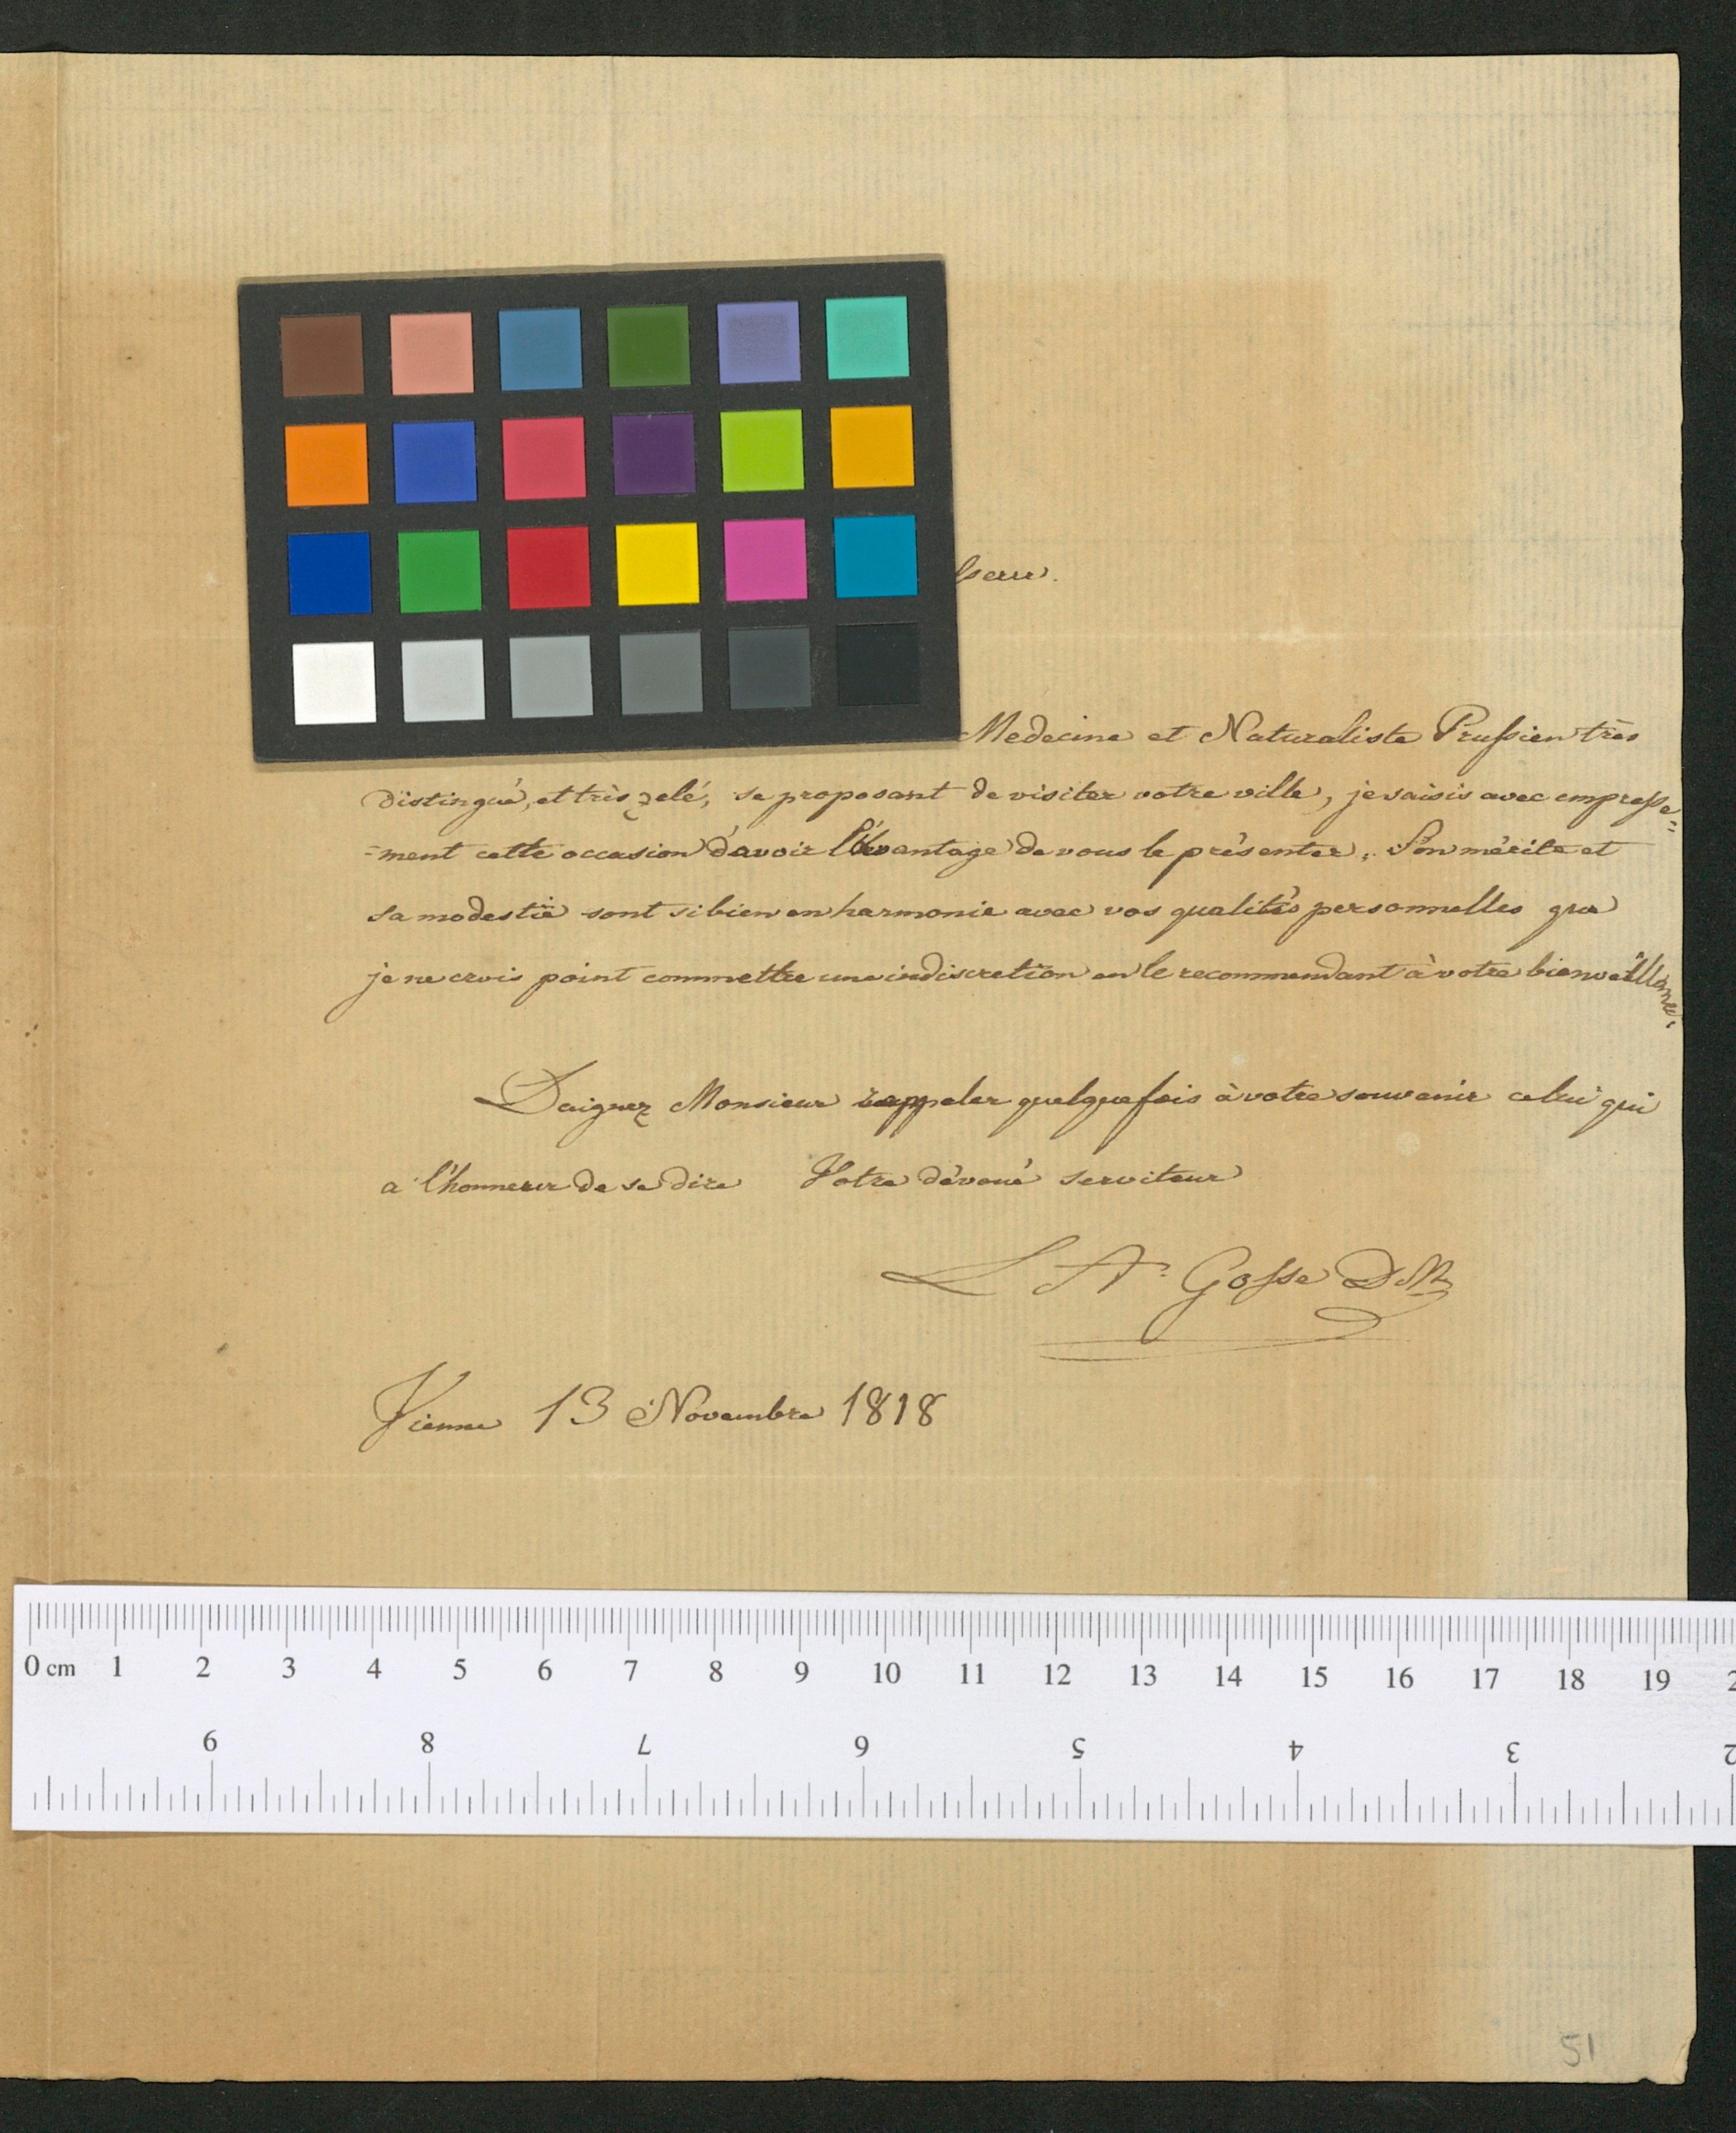 sseur.
Medecine et Naturaliste Prussien très
distingué, et très zelé, se proposant de visiter votre ville, je saisis avec empresse=
=ment cette occasion d'avoir l'avantage de vous le présenter. Son mérite et
sa modestie sont si bien en harmonie avec vos qualités personnelles que
je ne crois point commettre une indiscretion en le recommendant à votre bienveillance.
Daignez Monsieur rappeler quelquefois à votre souvenir celui qui
a l'honneur de se dire Votre dévoué serviteur
L A. Gosse DM
Vienne 13 Novembre 1818
0 cm 1 2 3 4 5 6 7 8 9 10 11 12 13 14 15 16 17 18 19 2
9 8 7 6 5 4 3 2
51